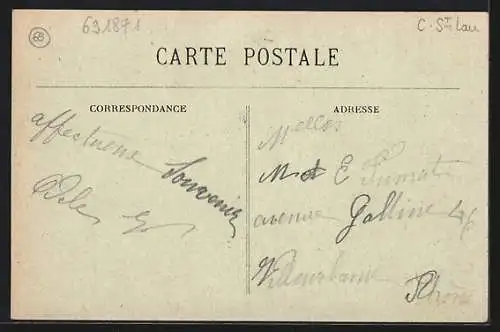 69
691871
C. St Lau
CARTE POSTALE
CORRESPONDANCE
affectueux
Souvenir
ADRESSE
Melles
M et E
avenue Galline 46
Villeurbanne
Rhône